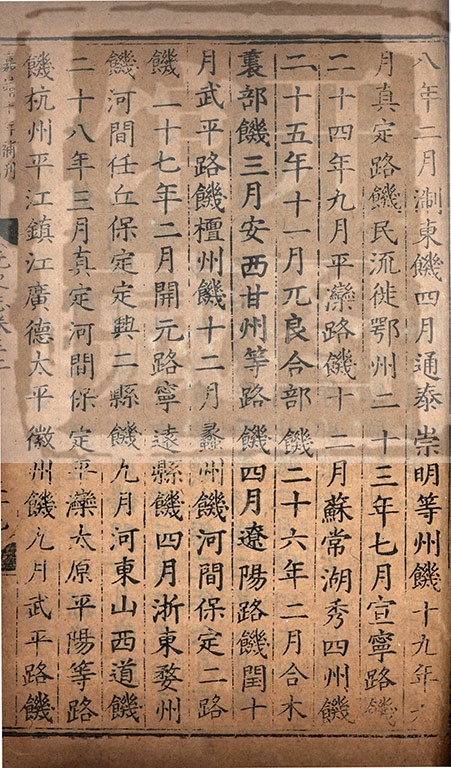 八年二月淛東饑四月通泰崇明等州饑十九年
月真定路饑民流徙鄂州二十三年七月宣寧路饑
二十四年九月平灤路饑十二月蘇常湖秀四州饑
二十五年十一月兀良合部饑二十六年二月合木
裏部饑三月安西甘州等路饑四月遼陽路饑閏十
月武平路饑檀州饑十二月蠡州饑河間保定二路
饑二十七年二月開元路寧遠縣饑四月浙東婺州
饑河間任丘保定定興二縣饑九月河東山西道饑
二十八年三月真定河間保定平灤太原平陽等路
饑杭州平江鎮江廣德太平徽州饑九月武平路饑
嘉靖十年補刊